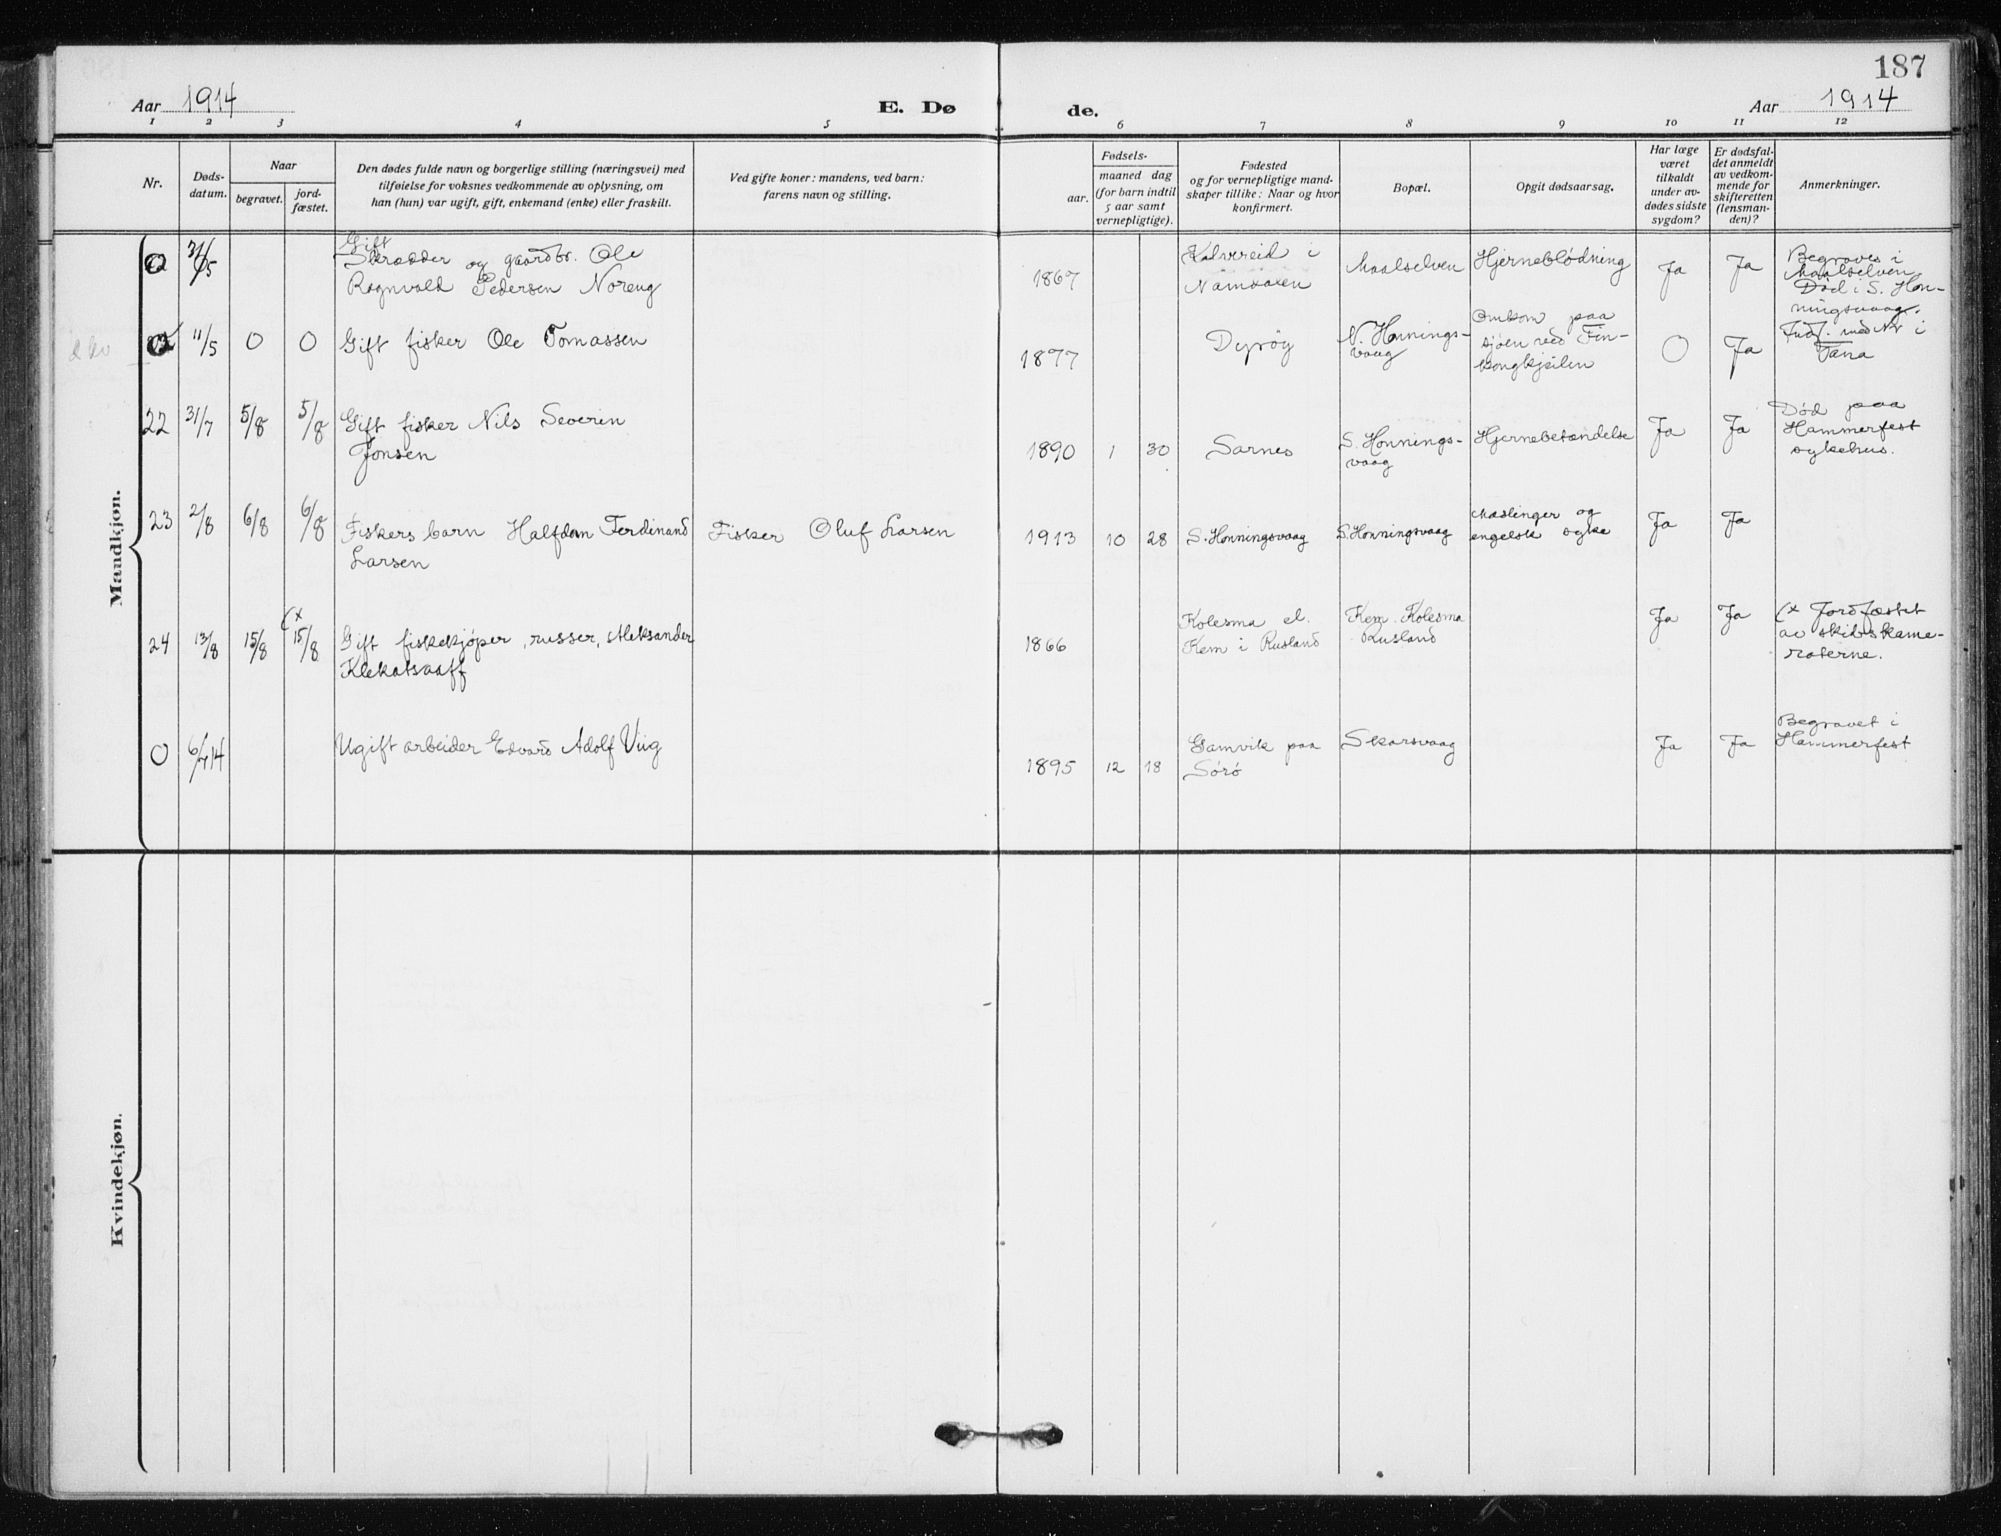 187
Aar 1914
E. Dø de.
Aar 1914
1 2 3 4 5 6 7 8 9 10 11 12
Nr.
Døds-
datum.
Naar
begravet.
jord-
fæstet.
Den dødes fulde navn og borgerlige stilling (næringsvei) med
tilføielse for voksnes vedkommende av oplysning, om
han (hun) var ugift, gift, enkemand (enke) eller fraskilt.
Ved gifte koner: mandens, ved barn:
farens navn og stilling.
Fødsels-
aar.
maaned dag
(for barn indtil
5 aar samt
vernepligtige).
Fødested
og for vernepligtige mand-
skaper tillike: Naar og hvor
konfirmert.
Bopæl.
Opgit dødsaarsag.
Har læge
været
tilkaldt
under av-
dødes sidste
sygdom?
Er dødsfal-
det anmeldt
av vedkom-
mende for
skifteretten
(lensman-
den)?
Anmerkninger.
Mandkjøn.
0 31/5 Gift
Skrædder og gaardbr. Ole
Ragnvald Pedersen Noreng
1867
Kalvreid i
Namsaxen
Maalselven
Hjerneblødning
Ja Ja
Begraves i
Maalselven.
Død i S. Hon-
ningsvaag.
11/5 0 0 Gift fisker Ole Tomassen
1877
Dyrøy
N. Honnings-
vaag
Omkom paa
sjøen ved Fin-
kongkjeilen
0 Ja
Indf. med Nr i
Tana
22 31/7 5/8 5/8 Gift fisker Nils Severin
Jonsen
1890 1 30
Sarnes
S. Honnings-
vaag
Hjernebetændelse
Ja Ja
Død paa
Hammerfest
sykehus.
23 2/8 6/8 6/8 Fiskers barn Halfdan Ferdinand
Larsen
Fisker Oluf Larsen
1913 10 28
S. Honningsvaag
S. Honningsvaag
Mæslinger og
engelsk syke
Ja Ja
24 13/8 15/8 (x 15/8 Gift fiskekjøper, russer, Aleksander
Klekatsaaff
1866
Kolesma el.
Kem i Rusland
Kem. Kolesma
Rusland
Ja Ja
(x Jordfæstet
av skibskame-
raterne.
0 6/7 14 Ugift arbeider Edvard Adolf Viig
1895 12 18
Gamvik paa
Sørø
Skarsvaag
Ja Ja
Begravet i
Hammerfest
Kvindekjøn.